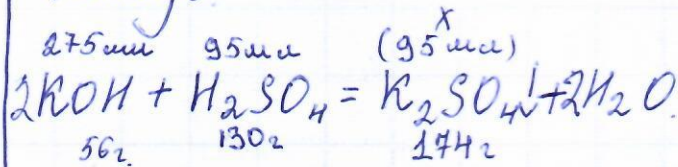 x
275мл 95мл (95мл)
2KOH + H₂SO₄ = K₂SO₄↓+2H₂O
56г. 130г 174г